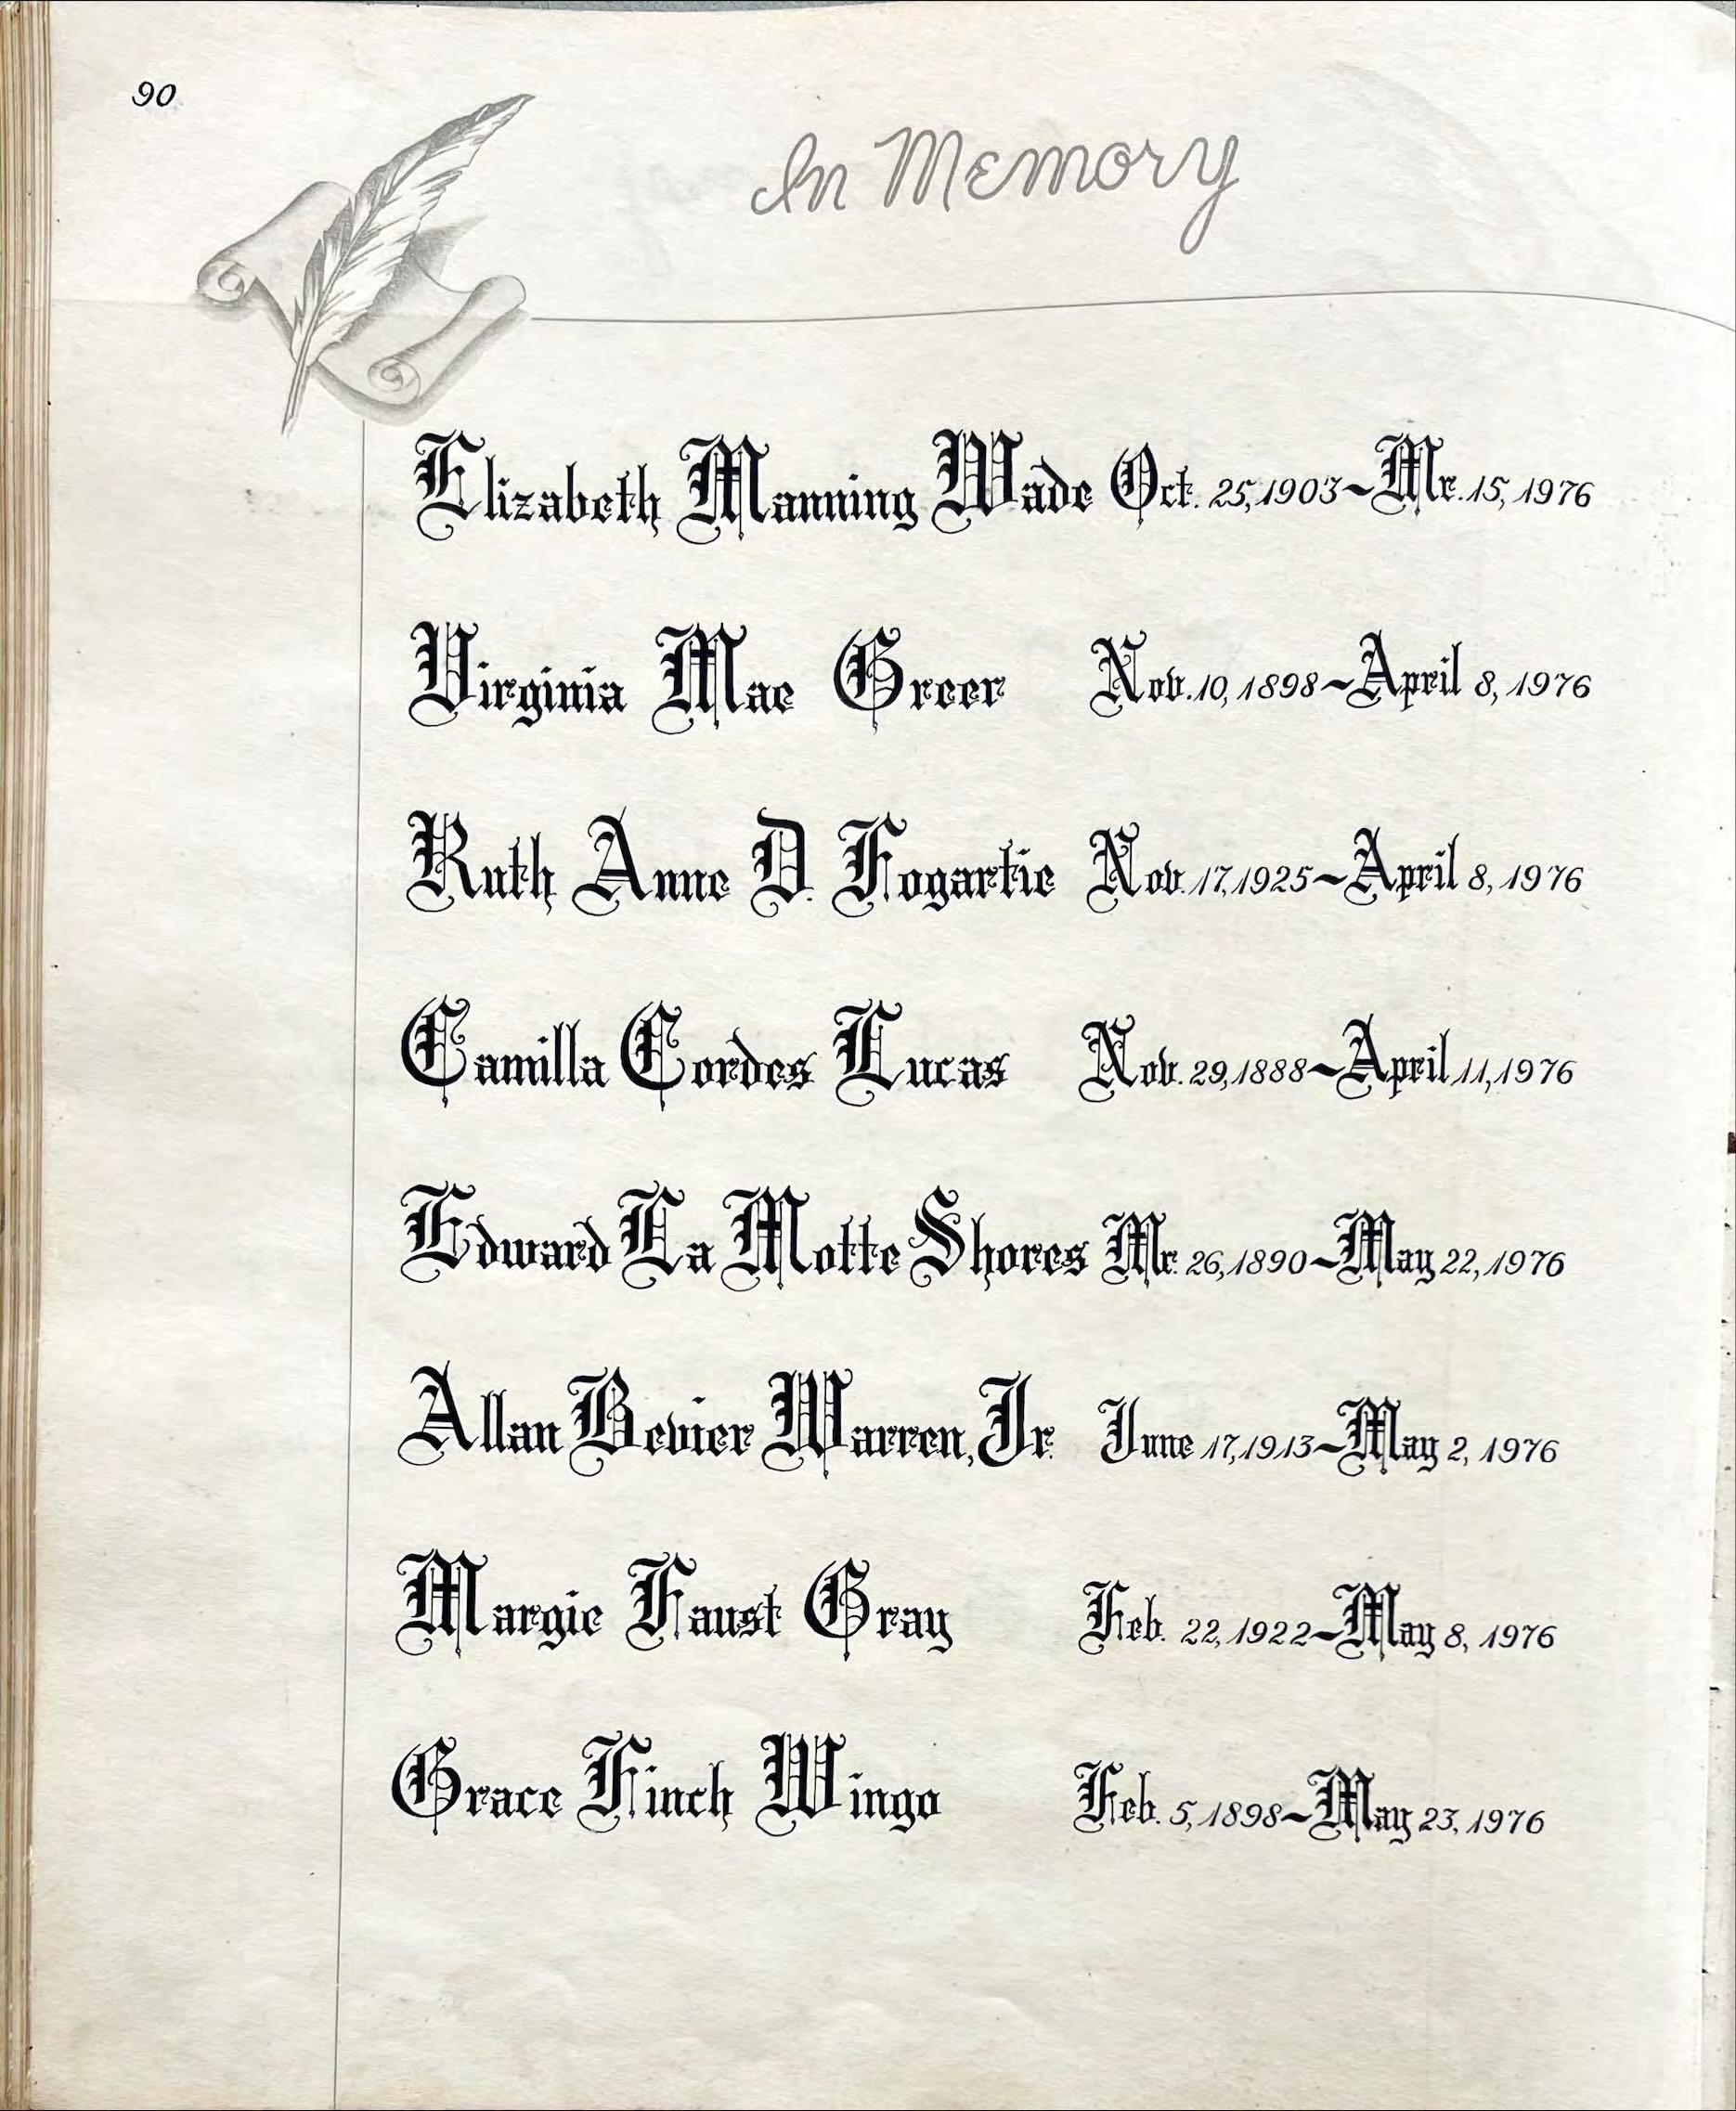 90
In Memory
Elizabeth Manning Wade Oct. 25, 1903~Mr. 15, 1976
Virginia Mae Greer Nov. 10, 1898~April 8, 1976
Ruth Anne D. Fogartie Nov. 17, 1925~April 8, 1976
Camilla Cordes Lucas Nov. 29, 1888~April 11, 1976
Edward La Motte Shores Mr. 26, 1890~May 22, 1976
Allan Bevier Warren, Jr. June 17, 1913~May 2, 1976
Margie Faust Gray Feb. 22, 1922~May 8, 1976
Grace Finch Wingo Feb. 5, 1898~May 23, 1976